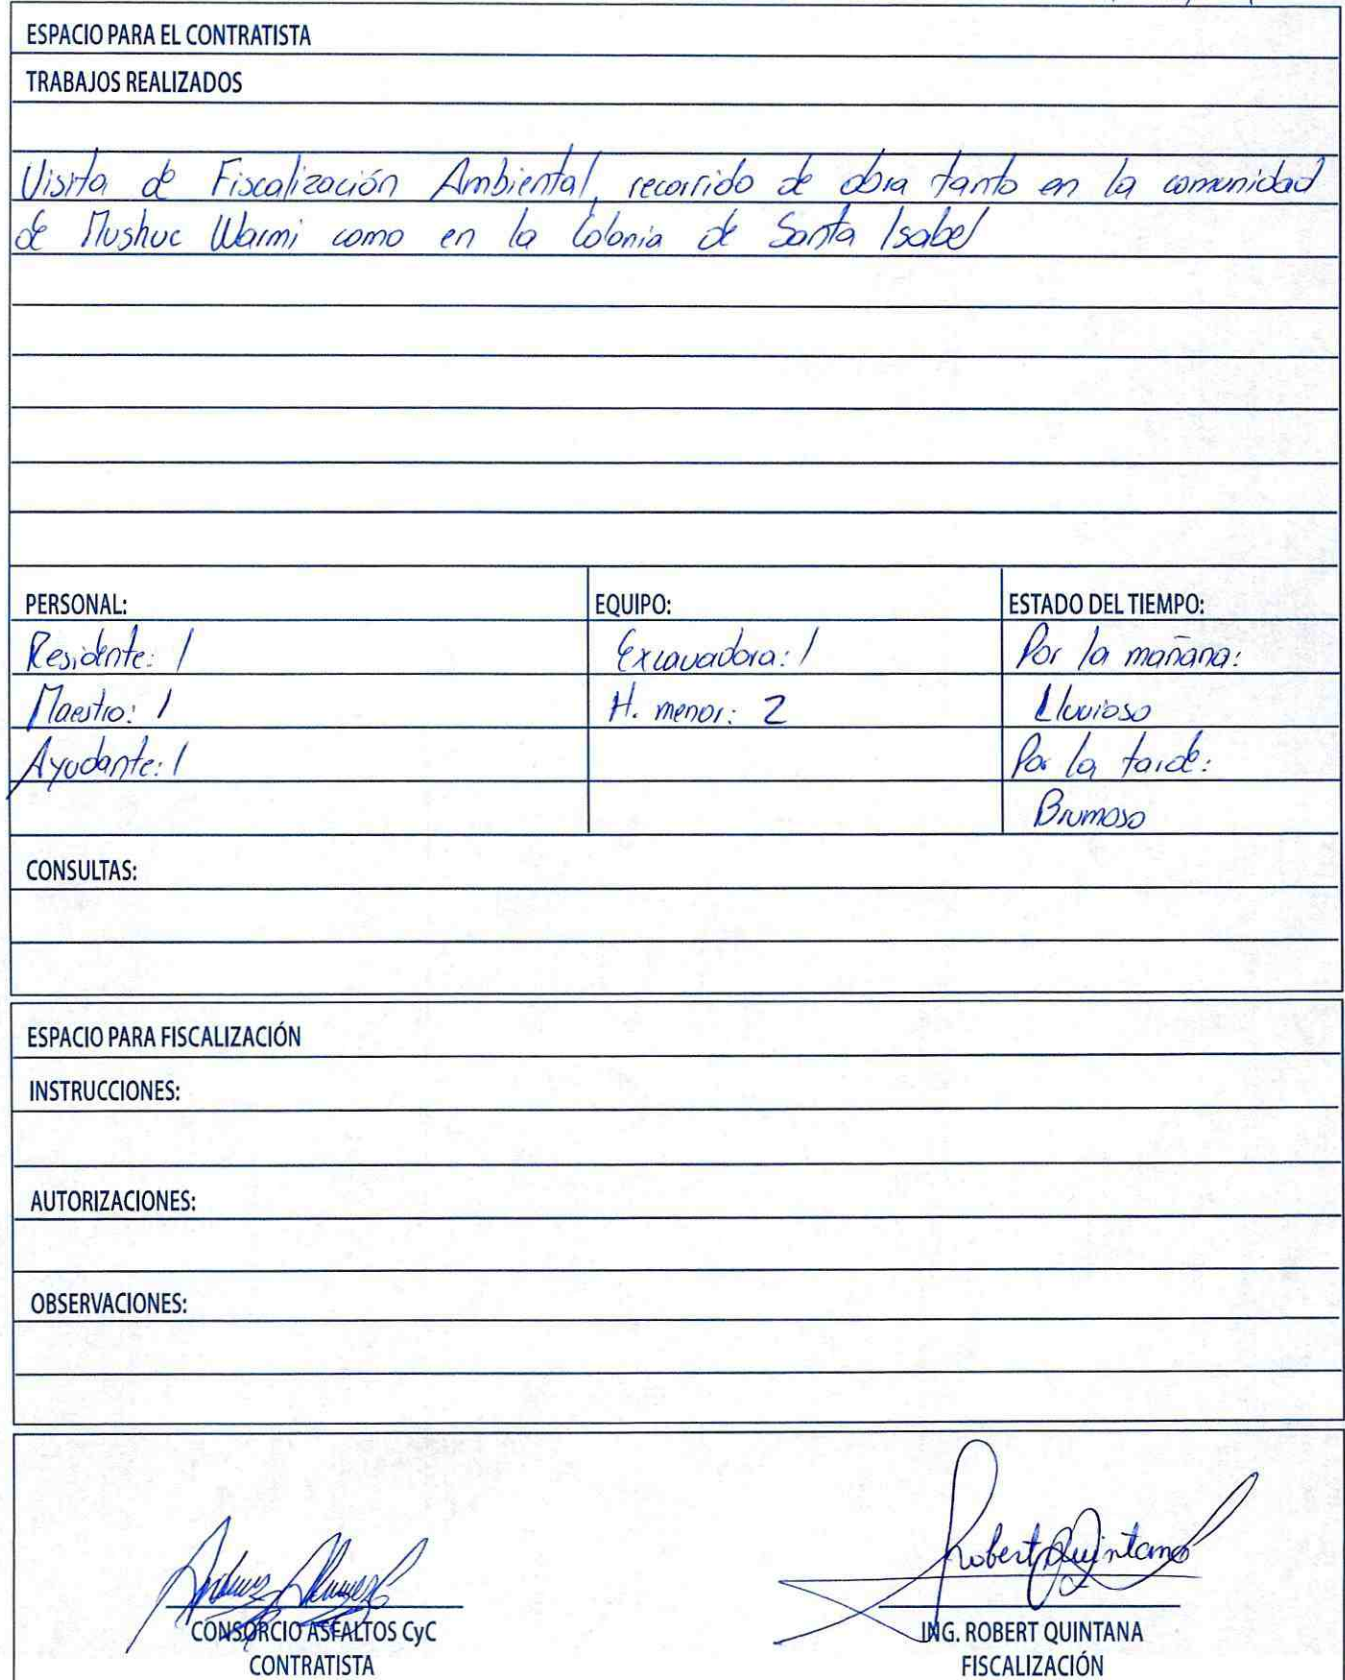 ESPACIO PARA EL CONTRATISTA
TRABAJOS REALIZADOS
Visita de Fiscalización Ambiental, recorrido de obra tanto en la comunidad
de Mushuc Warmi como en la Colonia de Santa Isabel
PERSONAL: EQUIPO: ESTADO DEL TIEMPO:
Residente: 1 Excavadora: 1 Por la mañana:
Maestro: 1 H. menor: 2 Lluvioso
Ayudante: 1 Por la tarde:
Brumoso
CONSULTAS:
ESPACIO PARA FISCALIZACIÓN
INSTRUCCIONES:
AUTORIZACIONES:
OBSERVACIONES:
Robert Quintana
CONSORCIO ASFALTOS CyC ING. ROBERT QUINTANA
CONTRATISTA FISCALIZACIÓN